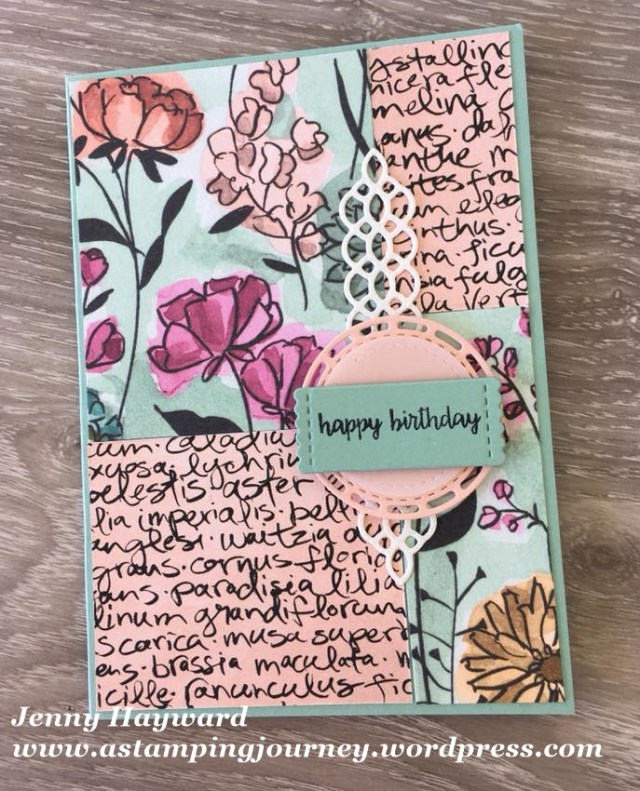 astalling
nicera fle
melina
anthe m
ites fra
um eleg
inthus
na. ficu
ensia fulg
da vert
happy birthday
um. caladiu
xyosa. lychni
oelestis aster
lia imperialis. bell
anglesi waitzia
grans. cornus. florida
ans. paradisia lilia
linum grandiflorum
scarica. musa super
ens. brassia maculata. m
icille. ranunculus. fic
Jenny Hayward
www.astampingjourney.wordpress.com